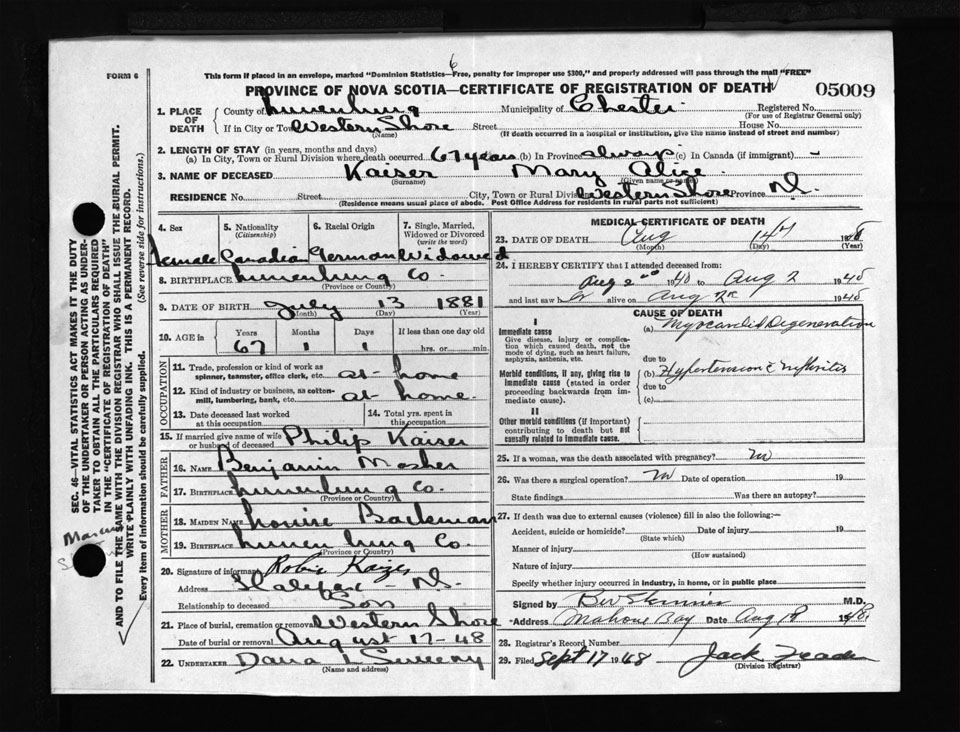 FORM 6
This form if placed in an envelope, marked "Dominion Statistics—Free, penalty for improper use $300," and properly addressed will pass through the mail "FREE"
6
PROVINCE OF NOVA SCOTIA—CERTIFICATE OF REGISTRATION OF DEATH
05009
1. PLACE OF DEATH
County of Lunenburg Municipality of Chester Registered No.
(For use of Registrar General only)
If in City or Town Western Shore Street House No.
(Name) (If death occurred in a hospital or institution, give the name instead of street and number)
2. LENGTH OF STAY (in years, months and days)
(a) In City, Town or Rural Division where death occurred 67 years (b) In Province always (c) In Canada (if immigrant) -
3. NAME OF DECEASED Kaiser Mary Alice
(Surname) (Given name or names)
RESIDENCE No. Street City, Town or Rural Division Western Shore Province N.S.
(Residence means usual place of abode. Post Office Address for residents in rural parts not sufficient)
4. Sex 5. Nationality (Citizenship) 6. Racial Origin 7. Single, Married, Widowed or Divorced (write the word)
Female Canadian German Widowed
8. BIRTHPLACE Lunenburg Co.
(Province or Country)
9. DATE OF BIRTH July 13 1881
(Month) (Day) (Year)
10. AGE in Years Months Days If less than one day old
67 1 1 hrs. or min.
OCCUPATION
11. Trade, profession or kind of work as spinner, teamster, office clerk, etc. at home
12. Kind of industry or business, as cotton-mill, lumbering, bank, etc. at home
13. Date deceased last worked at this occupation 14. Total yrs. spent in this occupation
15. If married give name of wife or husband of deceased Philip Kaiser
FATHER
16. NAME Benjamin Mosher
17. BIRTHPLACE Lunenburg Co.
(Province or Country)
MOTHER
18. MAIDEN NAME Louise Backman
19. BIRTHPLACE Lunenburg Co.
(Province or Country)
20. Signature of informant Robie Kaizer
Address Halifax - N.S.
Relationship to deceased Son
21. Place of burial, cremation or removal Western Shore
Date of burial or removal August 17-48
22. UNDERTAKER Dana L Sweeny
(Name and address)
MEDICAL CERTIFICATE OF DEATH
23. DATE OF DEATH Aug 14 1948
(Month) (Day) (Year)
24. I HEREBY CERTIFY that I attended deceased from:
Aug 2 1940 to Aug 2 1948
and last saw her alive on Aug 2 1948
CAUSE OF DEATH
I
Immediate cause
Give disease, injury or complication which caused death, not the mode of dying, such as heart failure, asphyxia, asthenia, etc.
(a) Myocardial Degeneration
due to
Morbid conditions, if any, giving rise to immediate cause (stated in order proceeding backwards from immediate cause).
(b) Hypertension & Nephritis
due to
(c)
II
Other morbid conditions (if important) contributing to death but not causally related to immediate cause.
25. If a woman, was the death associated with pregnancy? no
26. Was there a surgical operation? no Date of operation 19
State findings Was there an autopsy?
27. If death was due to external causes (violence) fill in also the following:—
Accident, suicide or homicide? Date of injury 19
(State which)
Manner of injury
(How sustained)
Nature of injury
Specify whether injury occurred in industry, in home, or in public place
Signed by M.D.
Address Mahone Bay Date Aug 1948
28. Registrar's Record Number
29. Filed Sept 17 1948 Jack
(Division Registrar)
SEC. 46—VITAL STATISTICS ACT MAKES IT THE DUTY
OF THE UNDERTAKER OR PERSON ACTING AS UNDER-
TAKER TO OBTAIN ALL THE PARTICULARS REQUIRED
IN THE "CERTIFICATE OF REGISTRATION OF DEATH"
AND TO FILE THE SAME WITH THE DIVISION REGISTRAR WHO SHALL ISSUE THE BURIAL PERMIT.
WRITE PLAINLY WITH UNFADING INK. THIS IS A PERMANENT RECORD.
Every item of information should be carefully supplied. (See reverse side for instructions.)